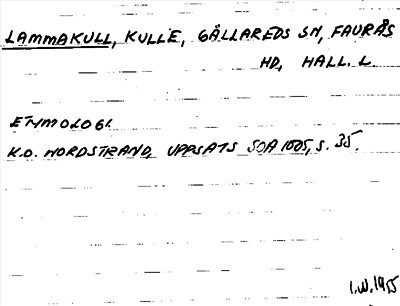 LAMMAKULL, KULLE, GÄLLAREDS SN, FAURÅS
HD, HALL. L.
ETYMOLOGI
K.O. NORDSTRAND, UPPSATS SOA 1005, S. 35.
I.W. 1955